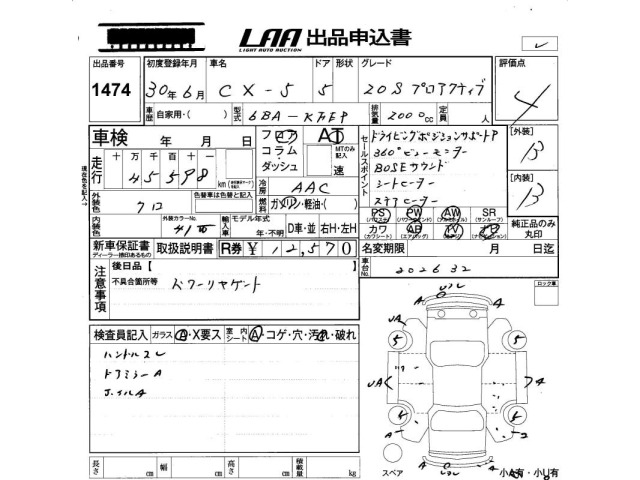 LAA 出品申込書
LIGHT AUTO AUCTION
出品番号 初度登録年月 車名 ドア 形状 グレード 評価点
1474 30年6月 CX-5 5 20S プロアクティブ 4
車歴 自家用・( ) 型式 6BA-KFEP 排気量 2000cc 定員 人
車検 年 月 日 フロア AT
コラム・ダッシュ MTのみ記入 速
走行 十 万 千 百 十
45598 km
セールスポイント
ドライビングポジションサポートP
360°ビューモニター
BOSEサウンド
シートヒーター
ステアヒーター
[外装] B
[内装] B
冷房 AAC
燃料 ガソリン・軽油・( )
外装色 クロ 色替車は色替と記入
内装色 外装カラーNo. 41W 輸入車 モデル年式 年・不明 D車・並 右H・左H
PS PW AW SR (サンルーフ) 純正品のみ丸印
カワ (カワシート) AB (エアバッグ) TV ナビ
新車保証書 取扱説明書 R券 ¥ 12,570
ディーラー捺印あるもの
名変期限 月 日迄
車台No. 202632
注意事項 後日品【 】
不具合箇所等 パワーリヤゲート
ロック車
検査員記入 ガラス A・X要ス 室内シート A・コゲ・穴・汚れ・破れ
ハンドルスレ
ドアミラーA
長さ cm 幅 cm 高さ cm 積載量 kg
スペア 小A有・小U有